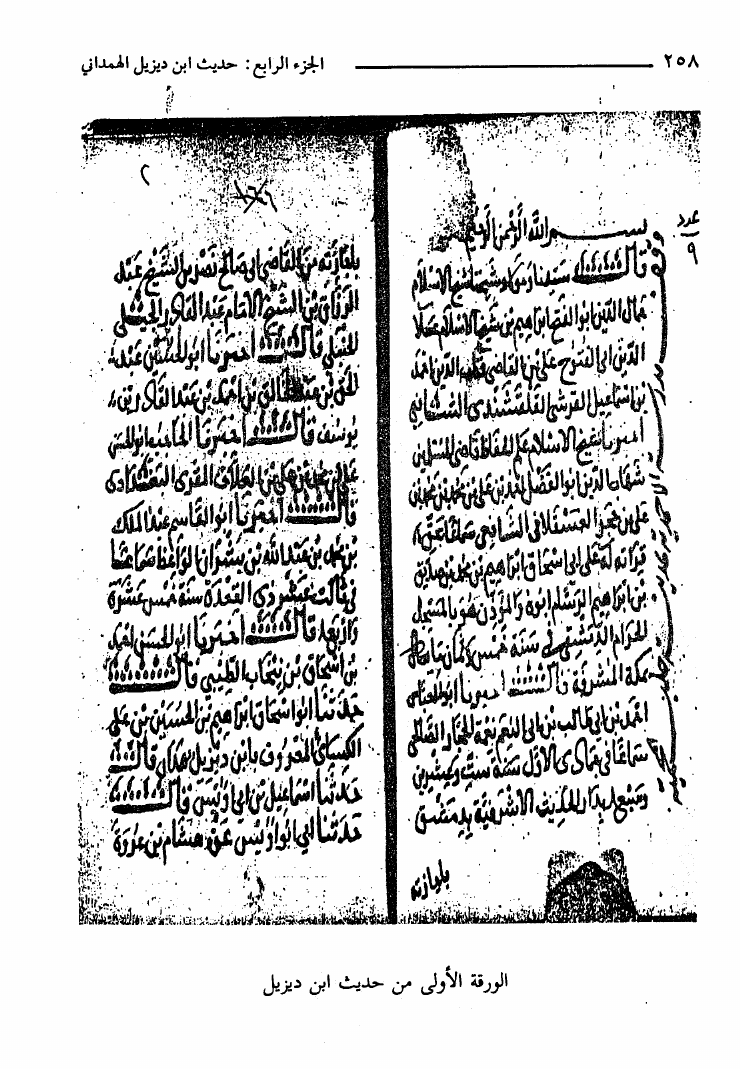 ٢٥٨ الجزء الرابع: حديث ابن ديزيل الهمداني
عدد
٩
بسم الله الرحمن الرحيم
قال سيدنا ومولانا وشيخنا شيخ الاسلام
جمال الدين ابو الفتح ابراهيم بن شيخ الاسلام علا
الدين ابي الفتوح علي بن القاضي قطب الدين احمد
بن اسماعيل القرشي القلقشندي الشافعي
اخبرنا شيخ الاسلام علم الحفاظ قاضي المسلمين
شهاب الدين ابو الفضل احمد بن علي بن محمد بن محمد بن
علي بن حجر العسقلاني الشافعي سماعا عن
قراته له على ابي اسحاق ابراهيم بن محمد بن صديق
بن ابراهيم الرسام ابوه والمؤذن هو بالمسجد
الحرام الدمشقي في سنة خمس
بمكة المشرفة قال اخبرنا ابو العباس
احمد بن ابي طالب بن ابي النعم نعمة الحجار الصالحي
سماعا في جمادى الاول سنة ست وعشرين
وسبع بدار الحديث الاشرفية بدمشق
باجازته
٢
باجازته من القاضي ابي صالح نصر بن الشيخ عبد
الرزاق بن الشيخ الامام عبد القادر الجيلي
الحنبلي قال اخبرنا ابو الحسين عبد
الحق بن عبد الخالق بن احمد بن عبد القادر بن
يوسف قال اخبرنا الحاجب ابو الحسن
علي بن محمد بن علي بن العلاف المقرى البغدادي
قال اخبرنا ابو القاسم عبد الملك
بن محمد بن عبد الله بن بشران الواعظ سماعا
في ثالث عشر ذي القعدة سنة خمس عشرة
واربعم قال اخبرنا ابو الحسن احمد
بن اسحاق بن نيخاب الطيبي قال
حدثنا ابو اسحاق ابراهيم بن الحسين بن علي
الكسائي المعروف بابن ديزيل بهمدان قال
حدثنا اسماعيل بن ابي اويس قال
حدثنا ابي ابو اويس عن هشام بن عروة
الورقة الأولى من حديث ابن ديزيل